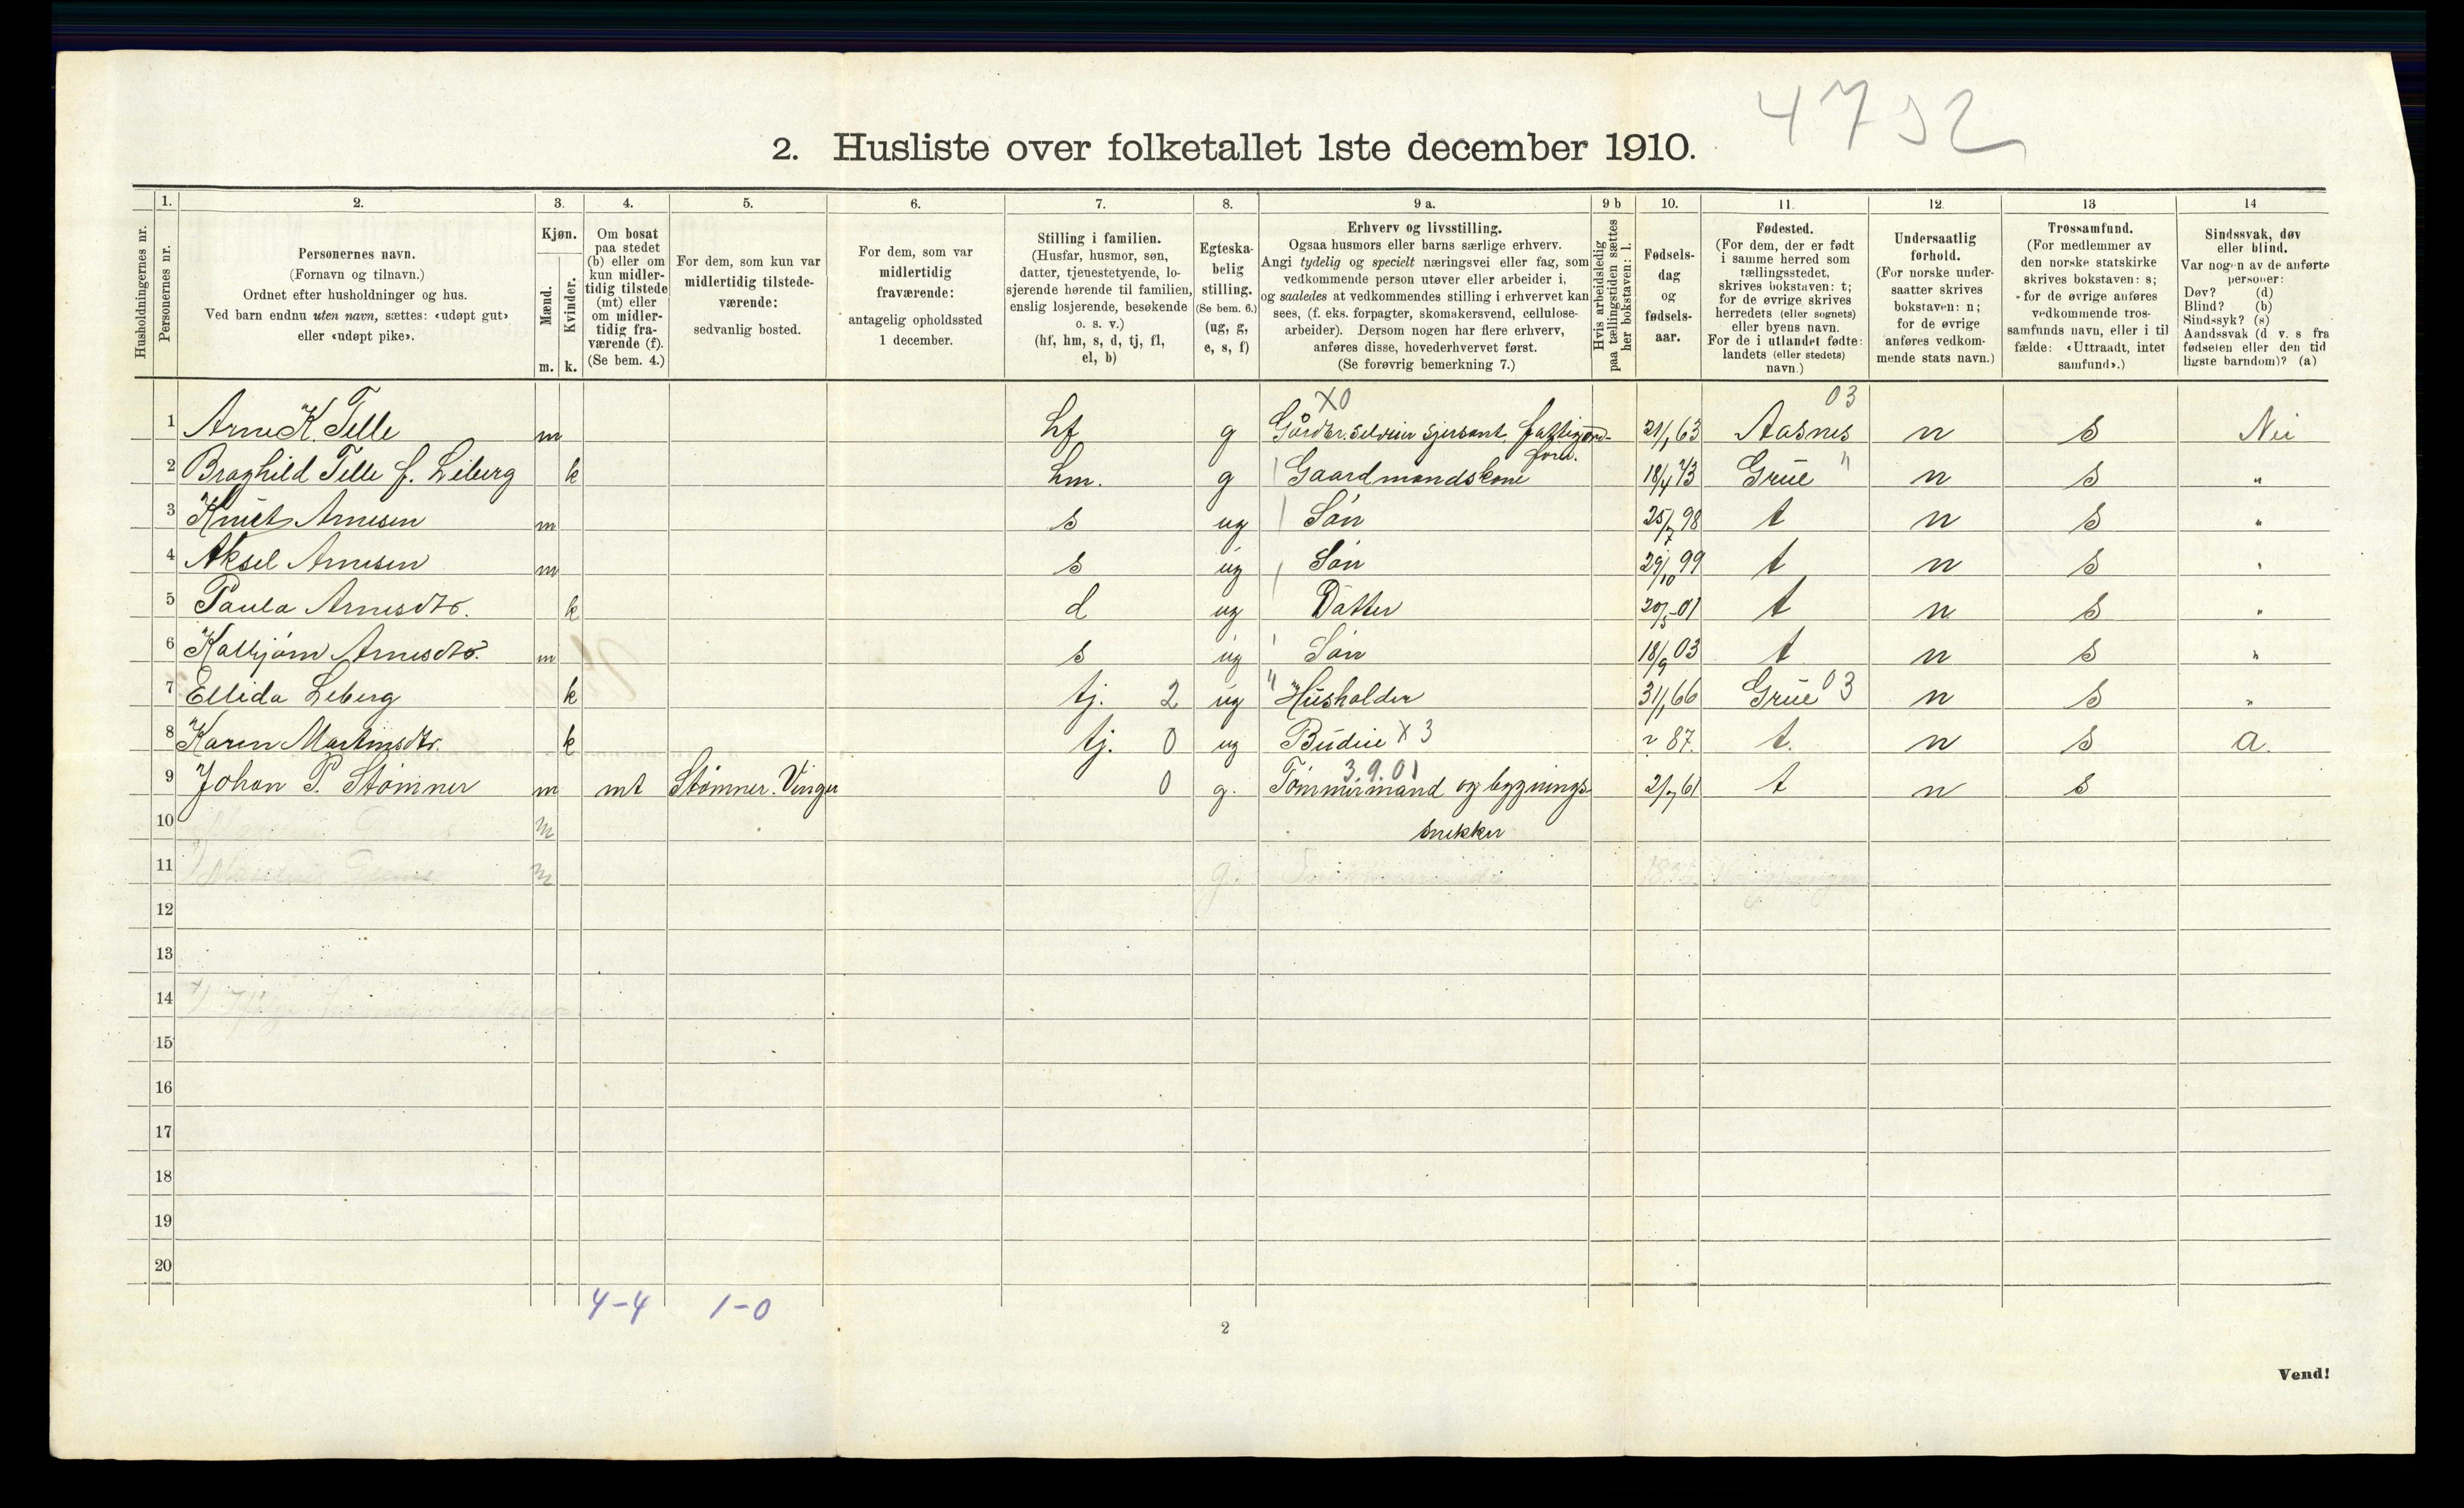 4752
2. Husliste over folketallet 1ste december 1910.
Husholdningernes nr.
1. Personernes nr.
2. Personernes navn.
(Fornavn og tilnavn.)
Ordnet efter husholdninger og hus.
Ved barn endnu uten navn, sættes: «udøpt gut»
eller «udøpt pike».
3. Kjøn.
Mænd. Kvinder.
m. k.
4. Om bosat
paa stedet
(b) eller om
kun midler-
tidig tilstede
(mt) eller
om midler-
tidig fra-
værende (f).
(Se bem. 4.)
5. For dem, som kun var
midlertidig tilstede-
værende:
sedvanlig bosted.
6. For dem, som var
midlertidig
fraværende:
antagelig opholdssted
1 december.
7. Stilling i familien.
(Husfar, husmor, søn,
datter, tjenestetyende, lo-
sjerende hørende til familien,
enslig losjerende, besøkende
o. s. v.)
(hf, hm, s, d, tj, fl,
el, b)
8. Egteska-
belig
stilling.
(Se bem. 6.)
(ug, g,
e, s, f)
9 a. Erhverv og livsstilling.
Ogsaa husmors eller barns særlige erhverv.
Angi tydelig og specielt næringsvei eller fag, som
vedkommende person utøver eller arbeider i,
og saaledes at vedkommendes stilling i erhvervet kan
sees, (f. eks. forpagter, skomakersvend, cellulose-
arbeider). Dersom nogen har flere erhverv,
anføres disse, hovederhvervet først.
(Se forøvrig bemerkning 7.)
9 b Hvis arbeidsledig
paa tællingstiden sættes
her bokstaven: l.
10. Fødsels-
dag
og
fødsels-
aar.
11. Fødested.
(For dem, der er født
i samme herred som
tællingsstedet,
skrives bokstaven: t;
for de øvrige skrives
herredets (eller sognets)
eller byens navn.
For de i utlandet fødte:
landets (eller stedets)
navn.)
12. Undersaatlig
forhold.
(For norske under-
saatter skrives
bokstaven: n;
for de øvrige
anføres vedkom-
mende stats navn.)
13 Trossamfund.
(For medlemmer av
den norske statskirke
skrives bokstaven: s;
for de øvrige anføres
vedkommende tros-
samfunds navn, eller i til
fælde: «Uttraadt, intet
samfund».)
14 Sindssvak, døv
eller blind.
Var nogen av de anførte
personer:
Døv? (d)
Blind? (b)
Sindssyk? (s)
Aandssvak (d. v. s. fra
fødselen eller den tid
ligste barndom)? (a)
X0 03
1 Arne K. Telle m hf g Gårdbr. Selveier Sjersant, fattigford- 21/1 63 Aasnes n s Nei
forst.
2 Braghild Telle f. Liberg k hm. g Gaardmandskone 18/4 73 Grue " n s "
3 Knut Arnesen m s ug Søn 25/7 98 t n s "
4 Aksel Arnesen m s ug Søn 29/10 99 t n s "
5 Paula Arnesdtr. k d ug Datter 20/5 01 t n s "
6 Kolbjørn Arnesdtr. m s ug Søn 18/9 03 t n s "
7 Ellida Leberg k tj. 2 ug " Husholder 31/1 66 Grue 03 n s "
8 Karen Martinsdtr. k tj. 0 ug Budeie X 3 87. t. n s a.
3.9.01
9 Johan P. Stømner m mt Stømner. Vinger 0 g. Tømmermand og bygnings 2/7 61 t n s
10 m snekker
11 m g.
12
13
14
15
16
17
18
19
20
4-4 1-0
2
Vend!